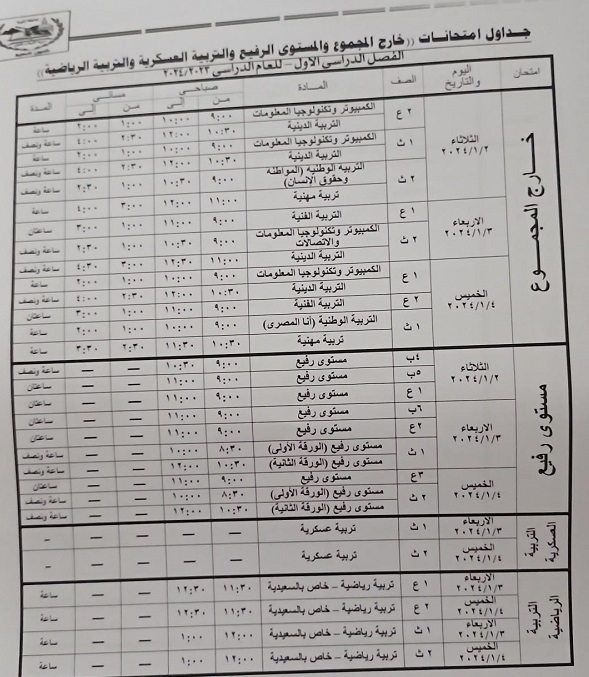 جداول امتحانات ((خارج المجموع والمستوى الرفيع والتربية العسكرية والتربية الرياضية))
الفصل الدراسى الأول – للعام الدراسى ٢٠٢٤/٢٠٢٣
امتحان اليوم والتاريخ الصف المادة صباحي من إلى مسائى من إلى المدة
خارج المجموع
الثلاثاء ٢٠٢٤/١/٢
٢ ع الكمبيوتر وتكنولوجيا المعلومات ٩:٠٠ ١٠:٠٠ ١:٠٠ ٢:٠٠ ساعة
التربية الدينية ١٠:٣٠ ١٢:٠٠ ٢:٣٠ ٤:٠٠ ساعة ونصف
١ ث الكمبيوتر وتكنولوجيا المعلومات ٩:٠٠ ١٠:٠٠ ١:٠٠ ٢:٠٠ ساعة
التربية الدينية ١٠:٣٠ ١٢:٠٠ ٢:٣٠ ٤:٠٠ ساعة ونصف
٢ ث التربية الوطنية (المواطنة وحقوق الإنسان) ٩:٠٠ ١٠:٣٠ ١:٠٠ ٢:٣٠ ساعة ونصف
تربية مهنية ١١:٠٠ ١٢:٠٠ ٣:٠٠ ٤:٠٠ ساعة
الاربعاء ٢٠٢٤/١/٣
١ ع التربية الفنية ٩:٠٠ ١١:٠٠ ١:٠٠ ٣:٠٠ ساعتان
٢ ث الكمبيوتر وتكنولوجيا المعلومات والاتصالات ٩:٠٠ ١٠:٣٠ ١:٠٠ ٢:٣٠ ساعة ونصف
التربية الدينية ١١:٠٠ ١٢:٣٠ ٣:٠٠ ٤:٣٠ ساعة ونصف
الخميس ٢٠٢٤/١/٤
١ ع الكمبيوتر وتكنولوجيا المعلومات ٩:٠٠ ١٠:٠٠ ١:٠٠ ٢:٠٠ ساعة
التربية الدينية ١٠:٣٠ ١٢:٠٠ ٢:٣٠ ٤:٠٠ ساعة ونصف
٢ ع التربية الفنية ٩:٠٠ ١١:٠٠ ١:٠٠ ٣:٠٠ ساعتان
١ ث التربية الوطنية (أنا المصرى) ٩:٠٠ ١٠:٠٠ ١:٠٠ ٢:٠٠ ساعة
تربية مهنية ١٠:٣٠ ١١:٣٠ ٢:٣٠ ٣:٣٠ ساعة
مستوى رفيع
الثلاثاء ٢٠٢٤/١/٢
٤ب مستوى رفيع ٩:٠٠ ١٠:٣٠ — — ساعة ونصف
٥ب مستوى رفيع ٩:٠٠ ١١:٠٠ — — ساعتان
١ ع مستوى رفيع ٩:٠٠ ١١:٠٠ — — ساعتان
الاربعاء ٢٠٢٤/١/٣
٦ب مستوى رفيع ٩:٠٠ ١١:٠٠ — — ساعتان
٢ع مستوى رفيع ٩:٠٠ ١١:٠٠ — — ساعتان
١ ث مستوى رفيع (الورقة الأولى) ٨:٣٠ ١٠:٠٠ — — ساعة ونصف
مستوى رفيع (الورقة الثانية) ١٠:٣٠ ١٢:٠٠ — — ساعة ونصف
الخميس ٢٠٢٤/١/٤
٣ع مستوى رفيع ٩:٠٠ ١١:٠٠ — — ساعتان
٢ ث مستوى رفيع (الورقة الأولى) ٨:٣٠ ١٠:٠٠ — — ساعة ونصف
مستوى رفيع (الورقة الثانية) ١٠:٣٠ ١٢:٠٠ — — ساعة ونصف
التربية العسكرية
الاربعاء ٢٠٢٤/١/٣ ١ ث تربية عسكرية — — — — -
الخميس ٢٠٢٤/١/٤ ٢ ث تربية عسكرية — — — — -
التربية الرياضية
الاربعاء ٢٠٢٤/١/٣ ١ ع تربية رياضية – خاص بالسعيدية ١١:٣٠ ١٢:٣٠ — — ساعة
الخميس ٢٠٢٤/١/٤ ٢ ع تربية رياضية – خاص بالسعيدية ١١:٣٠ ١٢:٣٠ — — ساعة
الاربعاء ٢٠٢٤/١/٣ ١ ث تربية رياضية – خاص بالسعيدية ١٢:٠٠ ١:٠٠ — — ساعة
الخميس ٢٠٢٤/١/٤ ٢ ث تربية رياضية – خاص بالسعيدية ١٢:٠٠ ١:٠٠ — — ساعة